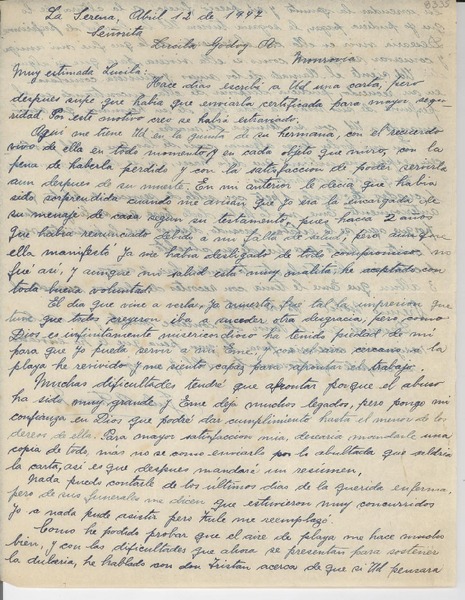 La Serena, Abril 12 de 1947
Señorita
Lucila Godoy A.
Monrovia
Muy estimada Lucila:
Hace dias escribí a Ud una carta, pero
despues supe que habia que enviarla certificada para mayor segu-
ridad. Por este motivo creo se habrá extraviado.
Aqui me tiene Ud en la quinta de su hermana, con el recuerdo
vivo de ella en todo momento y en cada objeto que miro, con la
pena de haberla perdido y con la satisfaccion de poder servirla
aun despues de su muerte. En mi anterior le decía que habia
sido sorprendida cuando me avisan que yo era la encargada de
su menaje de casa segun su testamento, pues hacia 2 años
que habia renunciado debido a mi falta de salud, pero aunque
ella manifestó ya me habia desligado de todo compromiso, no
fué asi, y aunque mi salud está muy malita, he aceptado con
toda buena voluntad.
El dia que vine a verla, ya muerta, fué tal la impresion que
tuve que todos creyeron iba a suceder otra desgracia, pero como
Dios es infinitamente misericordioso ha tenido piedad de mi
para que yo pueda servir a mi Eme, y con el aire cercano a la
playa he revivido y me siento capaz para afrontar el trabajo.
Muchas dificultades tendré que afrontar porque el abuso
ha sido muy grande y Eme deja muchos legados, pero pongo mi
confianza en Dios que podré dar cumplimiento hasta el menor de los
deseos de ella. Para mayor satisfaccion mia, desearia mandarle una
copia de todo, mas no se como enviarlo por lo abultada que saldria
la carta, asi es que despues mandaré un resumen.
Nada puedo contarle de los ultimos dias de la querida enferma,
pero de sus funerales me dicen que estuvieron muy concurridos
Yo a nada pude asistir pero me reemplazó.
Como he podido probar que el aire de playa me hace mucho
bien, y con las dificultades que ahora se presentan para sostener
la dulceria, he hablado con don Tristan acerca de que si Ud pensara